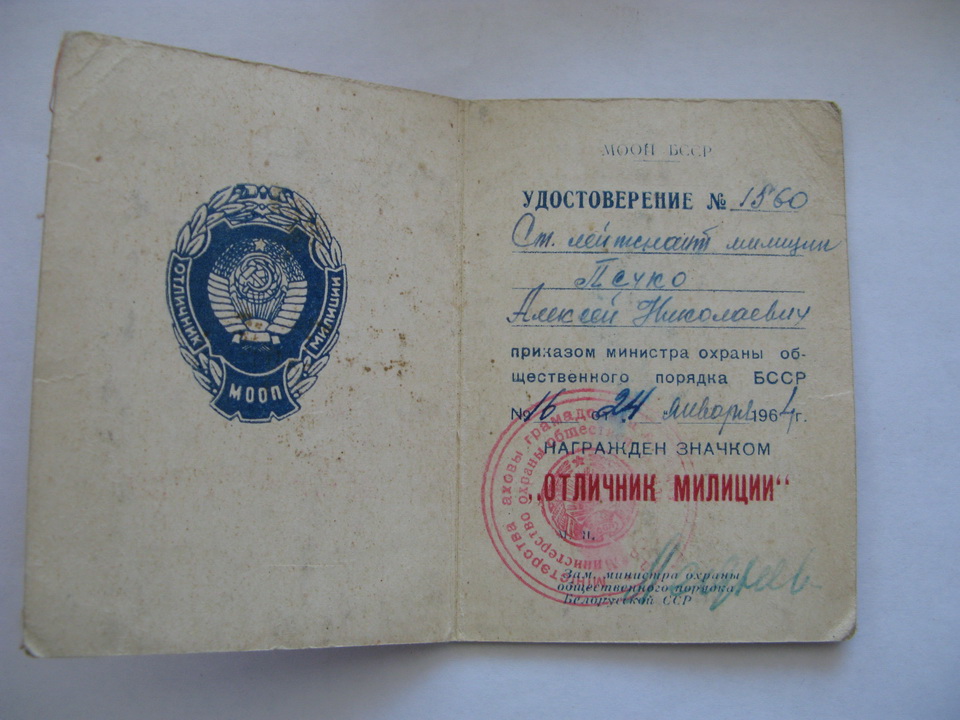 ОТЛИЧНИК МИЛИЦИИ
МООП
МООП БССР
УДОСТОВЕРЕНИЕ № 1560
Ст. лейтенант милиции
Печко
Алексей Николаевич
приказом министра охраны об-
щественного порядка БССР
№ 16 от 24 января 1964 г.
НАГРАЖДЕН ЗНАЧКОМ
„ОТЛИЧНИК МИЛИЦИИ“
м. п.
Зам. министра охраны
общественного порядка
Белорусской ССР